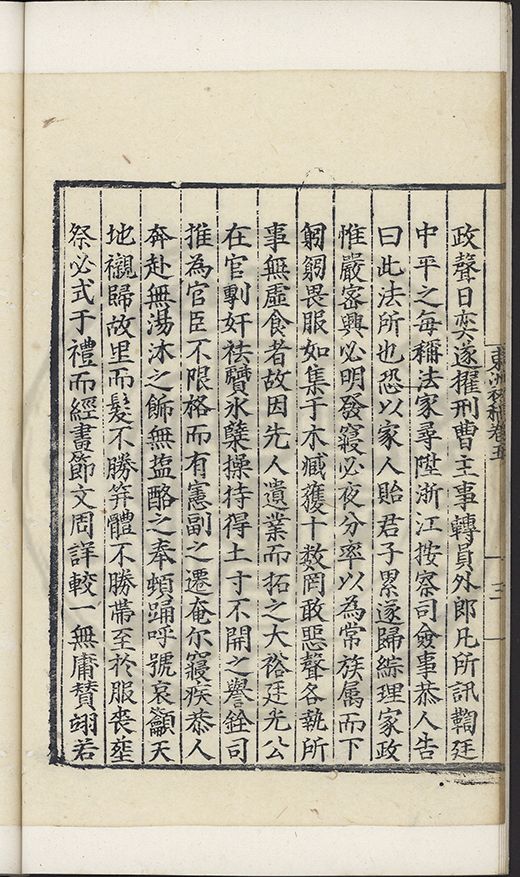 東洲稿卷五
三
政聲日奕遂擢刑曹主事轉員外郎凡所訊鞫廷
中平之每稱法家尋陞浙江按察司僉事恭人告
曰此法所也恐以家人貽君子累遂歸綜理家政
惟嚴密興必明發寢必夜分率以為常族属而下
躬躬畏服如集于木臧獲十数罔敢惡聲各執所
事無虛食者故因先人遺業而拓之大裕廷光公
在官剸奸袪贋氷櫱操持得土寸不開之譽銓司
推為官臣不限格而有憲副之遷奄尔寢疾恭人
奔赴無湯沐之飾無盐酪之奉蝢踊呼號哀籲天
地櫬歸故里而髮不勝笄體不勝帶至扵服喪塟
祭必式于禮而經畫節文周詳較一無庸賛翊若